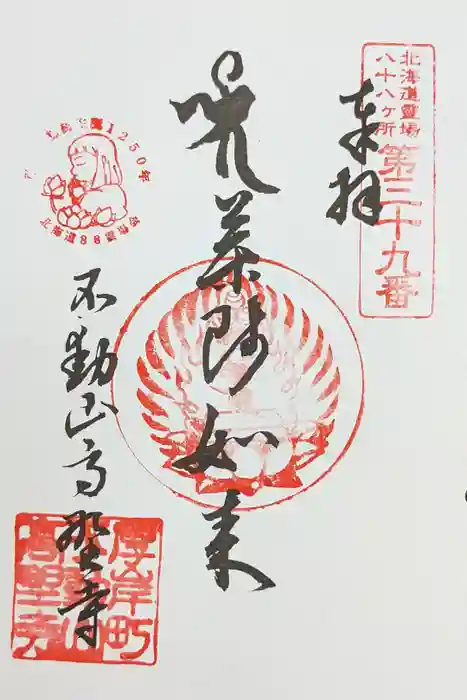 奉拝
北海道霊場
八十八ヶ所
第三十九番
薬師如来
1250年
北海道88
不動山高野寺
厚岸町
不動山
高野寺